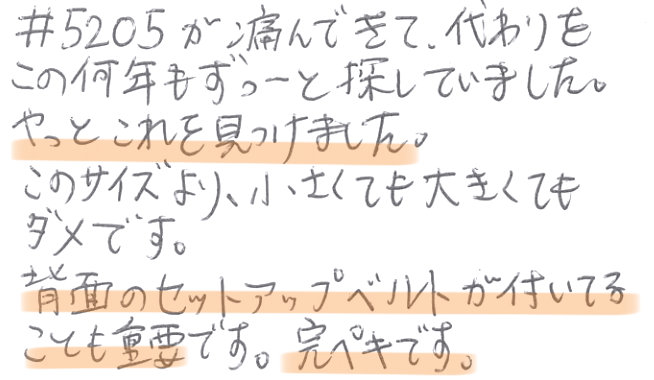 #5205が痛んできて、代わりを
この何年もずっーと探していました。
やっとこれを見つけました。
このサイズより、小さくても大きくても
ダメです。
背面のセットアップベルトが付いてる
ことも重要です。完ペキです。